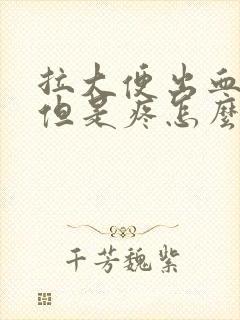 拉大便出血
但是疼怎麼
千芳魏紫